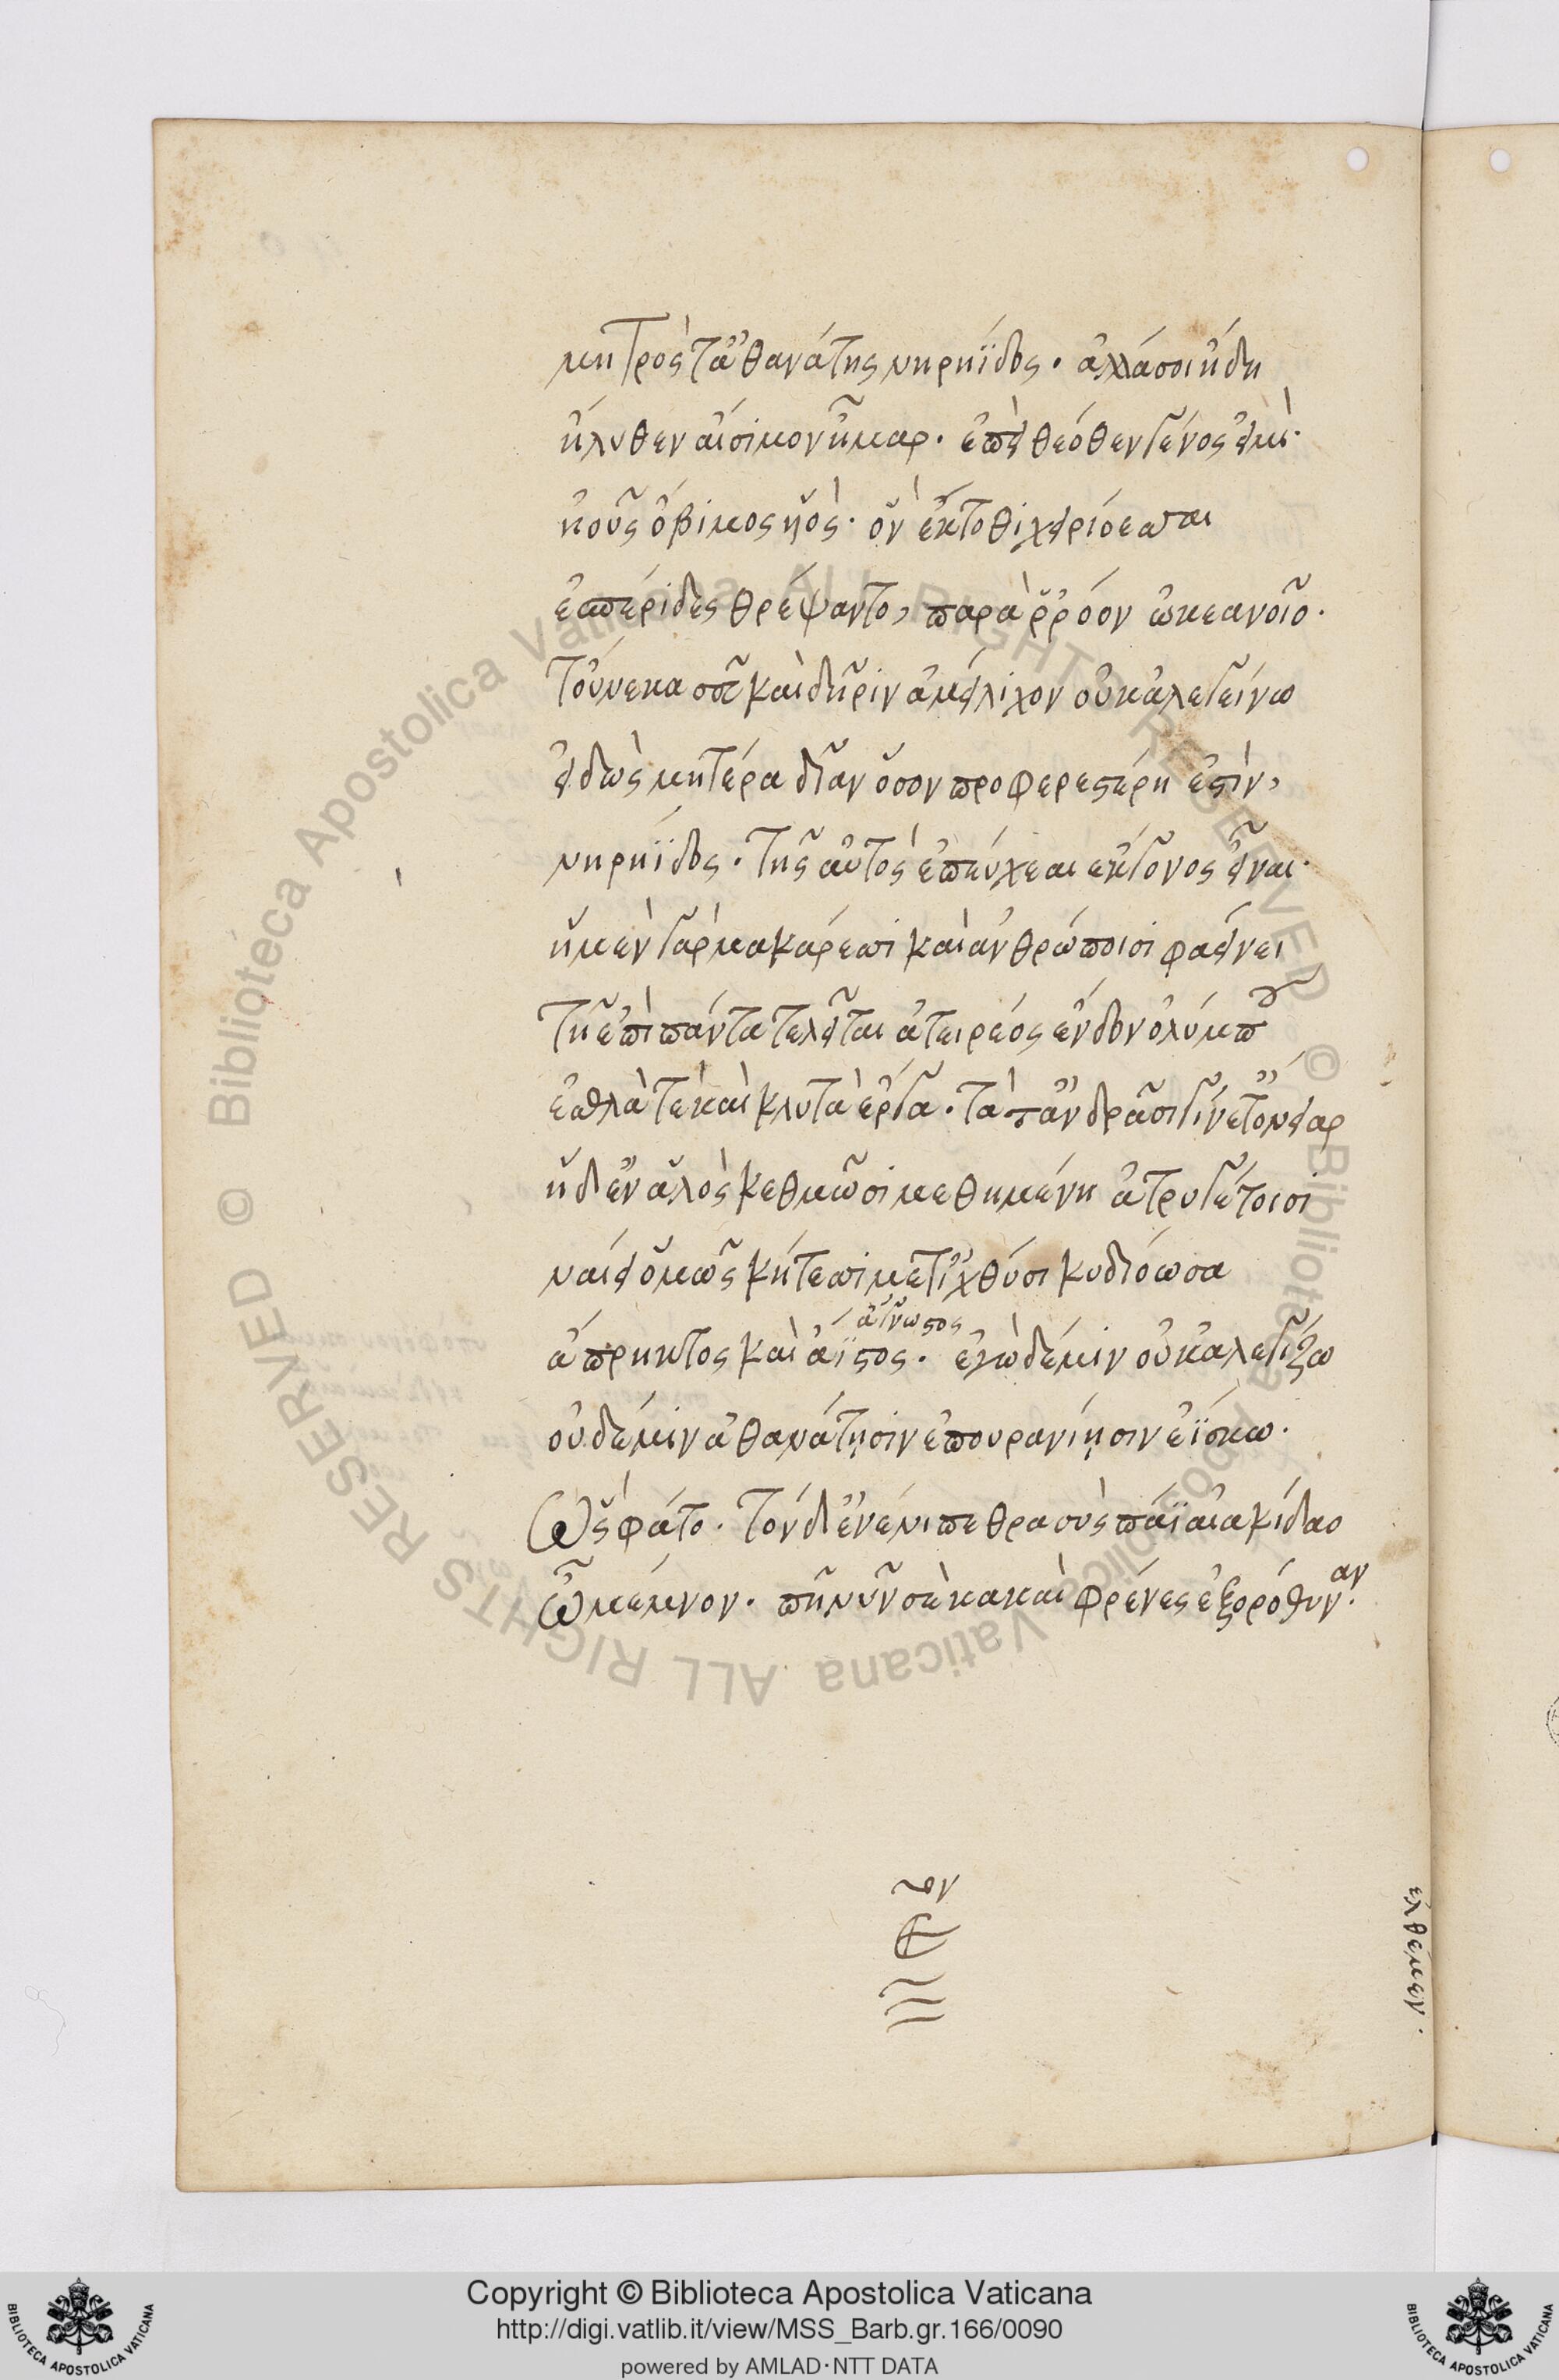 μητρός τ' ἀθανάτης νηρηΐδος. ἀλλά σοι ἤδη
ἤλυθεν αἴσιμον ἦμαρ. ἐπεὶ θεόθεν γένος εἰμί.
ἠοῦς ὄβριμος υἱός. ὃν ἔκτοθι λειριόεσσαι
ἑσπερίδες θρέψαντο, παρὰ ῥρόον ὠκεανοῖο.
τοὔνεκά σευ καὶ δῆριν ἀμείλιχον οὐκ ἀλεγείνω
εἰδὼς μητέρα δῖαν ὅσον προφερεστέρη ἐστὶν,
νηρηΐδος. τῆς αὐτὸς ἐπεύχεαι ἔκγονος εἶναι.
ἡ μὲν γὰρ μακάρεσσι καὶ ἀνθρώποισι φαείνει
τῇ ἐπὶ πάντα τελεῖται ἀτειρέος ἔνδον ὀλύμπου
ἐσθλά τε καὶ κλυτὰ ἔργα. τά τ' ἀνδράσι γίνετ' ὄνειαρ
ἡ δ' ἐν ἁλὸς κεθμῶσι μεθημένη ἀτρυγέτοισι
ναίει ὁμῶς κήτεσσι μετ' ἰχθύσι κυδιόωσα
ἄγνωστος
ἄπρηκτος καὶ ἄϊστος. ἐγὼ δέ μιν οὐκ ἀλεγίζω
οὐδέ μιν ἀθανάτῃσιν ἐπουρανίῃσιν ἐΐσκω.
Ὣς φάτο. τὸν δ' ἐνένιπε θρασὺς πάϊ αἰακίδαο
ὦ μέμνον. πῇ νῦν σὲ κακαὶ φρένες ἐξορόθυναν.
ἐλθέμεν.